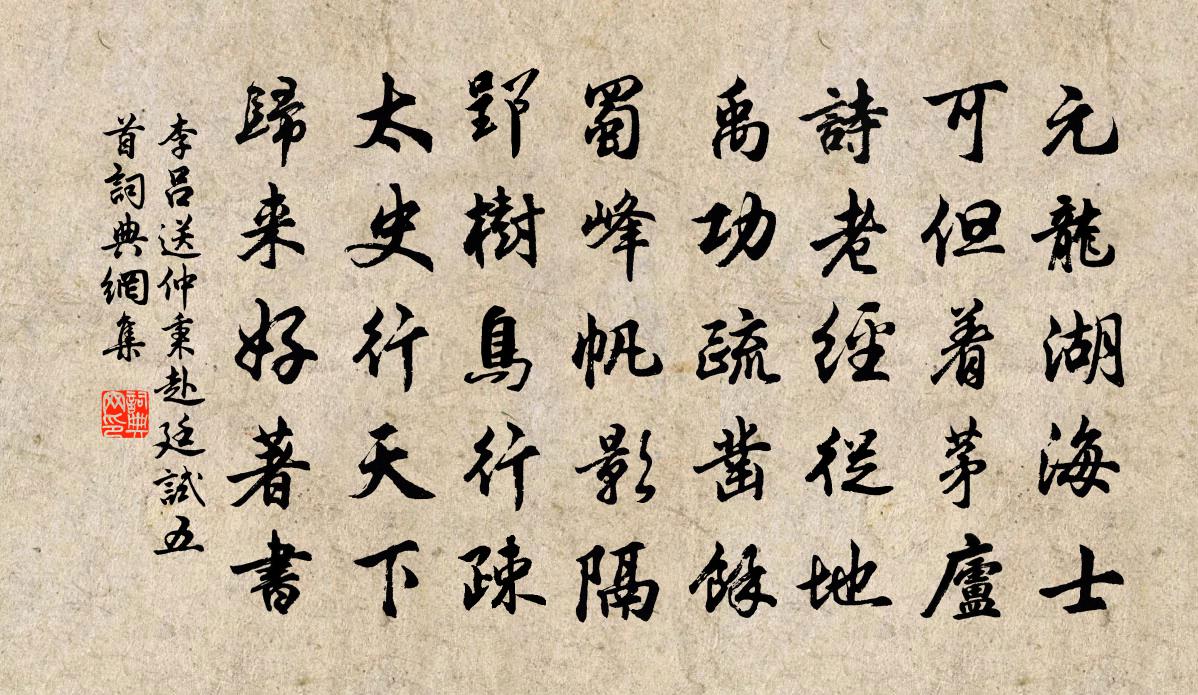 元龍湖海士
可但着茅廬
詩老經從地
禹功疏鑿餘
蜀峰帆影隔
郢樹鳥行疎
太史行天下
歸来好著書
李呂送仲秉赴廷試五
首詞典網集
詞典網印